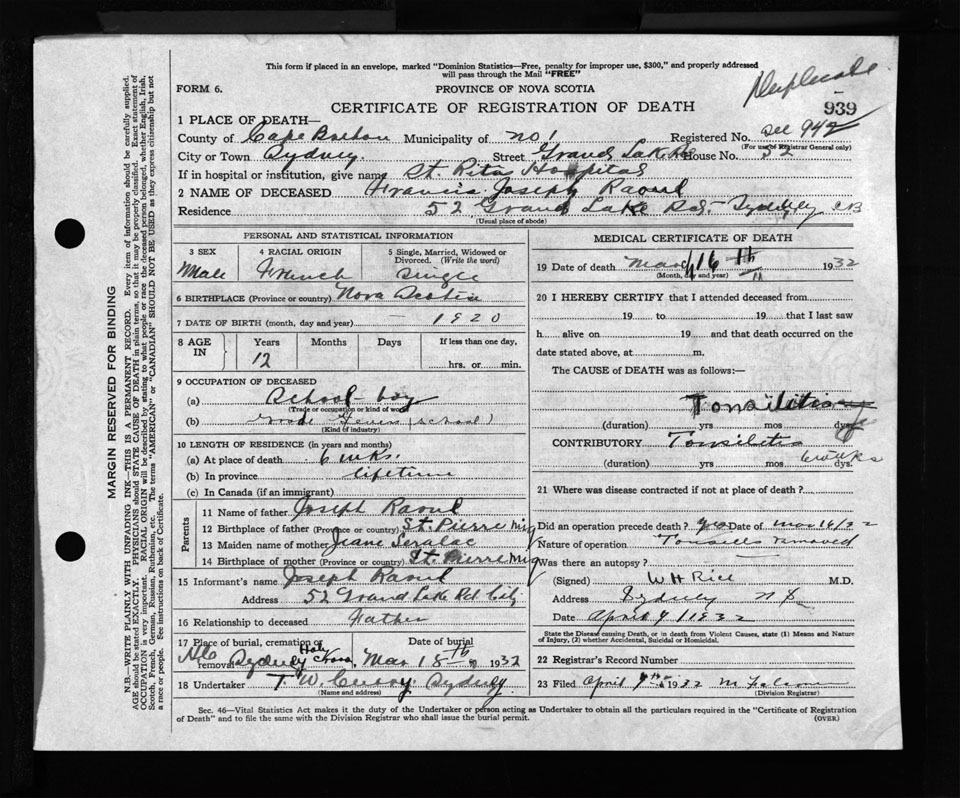 This form if placed in an envelope, marked "Dominion Statistics—Free, penalty for improper use, $300," and properly addressed
will pass through the Mail "FREE"
Duplicate
FORM 6.
PROVINCE OF NOVA SCOTIA
939
CERTIFICATE OF REGISTRATION OF DEATH
1 PLACE OF DEATH—
County of Cape Breton Municipality of No 1 Registered No. See 942
(For use of Registrar General only)
City or Town Sydney. Street Grand Lake Rd House No. 52
If in hospital or institution, give name St. Rita Hospital
2 NAME OF DECEASED Francis Joseph Raoul
Residence 52 Grand Lake Rd. Sydney CB
(Usual place of abode)
PERSONAL AND STATISTICAL INFORMATION
3 SEX
Male
4 RACIAL ORIGIN
French
5 Single, Married, Widowed or Divorced. (Write the word)
Single
6 BIRTHPLACE (Province or country) Nova Scotia
7 DATE OF BIRTH (month, day and year) 1920
8 AGE IN
Years Months Days If less than one day,
12
hrs. or min.
9 OCCUPATION OF DECEASED
(a) School-boy
(Trade or occupation or kind of work)
(b) Grade Seven (School)
(Kind of industry)
10 LENGTH OF RESIDENCE (in years and months)
(a) At place of death 6 wks.
(b) In province lifetime
(c) In Canada (if an immigrant)
Parents
11 Name of father Joseph Raoul
12 Birthplace of father (Province or country) St. Pierre Miq
13 Maiden name of mother Jeane
14 Birthplace of mother (Province or country) St. Pierre Miq
15 Informant's name Joseph Raoul
Address 52 Grand Lake Rd. City
16 Relationship to deceased Father
17 Place of burial, cremation or removal Sydney Holy Cross
Date of burial
Mar 18th 1932
18 Undertaker T. W. Curry Sydney
(Name and address)
MEDICAL CERTIFICATE OF DEATH
19 Date of death March 16th 1932
(Month, day and year)
20 I HEREBY CERTIFY that I attended deceased from
19 to 19 that I last saw
h alive on 19 and that death occurred on the
date stated above, at m.
The CAUSE of DEATH was as follows:—
Tonsilitis
(duration) yrs mos dys.
CONTRIBUTORY Tonsilitis
6 weeks
(duration) yrs mos dys.
21 Where was disease contracted if not at place of death?
Did an operation precede death? yes Date of Mar 16/32
Nature of operation Tonsills removed
Was there an autopsy?
(Signed) W H Rice M.D.
Address Sydney N S
Date April 9/1932
State the Disease causing Death, or in death from Violent Causes, state (1) Means and Nature
of Injury, (2) whether Accidental, Suicidal or Homicidal.
22 Registrar's Record Number
23 Filed April 9th 1932
(Division Registrar)
Sec. 46—Vital Statistics Act makes it the duty of the Undertaker or person acting as Undertaker to obtain all the particulars required in the "Certificate of Registration
of Death" and to file the same with the Division Registrar who shall issue the burial permit.
(OVER)
MARGIN RESERVED FOR BINDING
N.B.—WRITE PLAINLY WITH UNFADING INK—THIS IS A PERMANENT RECORD. Every item of information should be carefully supplied.
AGE should be stated EXACTLY. PHYSICIANS should STATE CAUSE OF DEATH in plain terms, so that it may be properly classified. Exact statement of
OCCUPATION is very important. RACIAL ORIGIN will be described by stating to what people or race the deceased person belonged, whether English, Irish,
Scotch, French, German, Russian, Ruthenian, etc. The terms "AMERICAN" or "CANADIAN" SHOULD NOT BE USED as they express citizenship but not
a race or people. See instructions on back of Certificate.